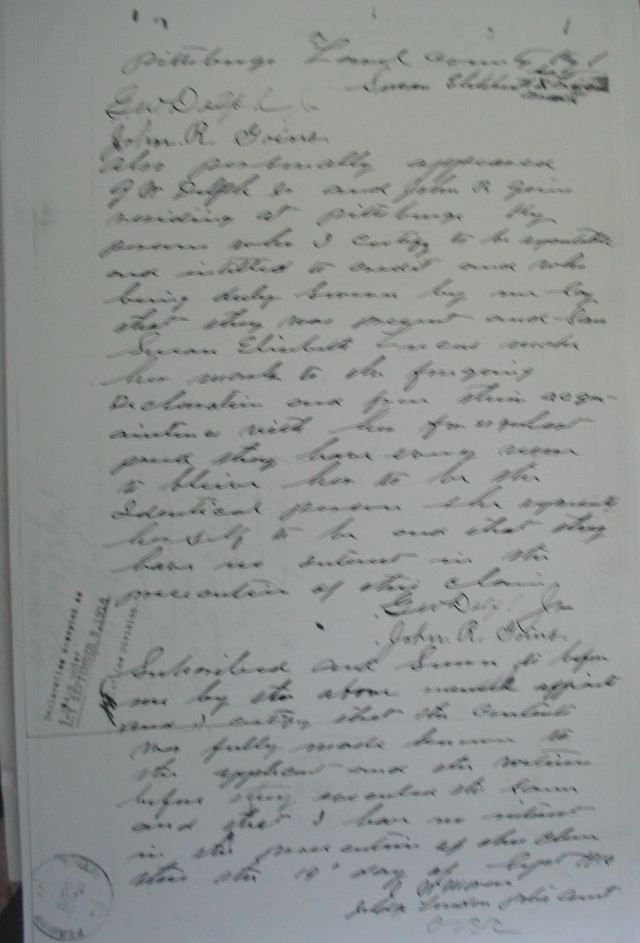 Pittsburge Laurel County Ky
Susan Elizabeth
G W Delph Jr
John R. Goins.
Also personally appeared
G W Delph Jr and John R Goins
residing at Pittsburge Ky
persons who I certify to be reputable
and intitled to credit and who
being duly sworn by me say
that they was present and saw
Susan Elizabeth Lucas make
her mark to the foregoing
Declaration and from their acqu-
aintince with her
they have every reason
to believe her to be the
Identical person she represents
herself to be and that they
have no interest in the
prosecution of this claim
G W Delph Jr
John R. Goins.
Subscribed and Sworn to before
me by the above named
and I certify that the contents
was fully made known to
the applicant and the witness
before they executed the same
and that I have no interest
in the prosecution of this claim
this the 19" day of Sept
Judge London Police Court
Declaration accepted as
ACT SEPTEMBER